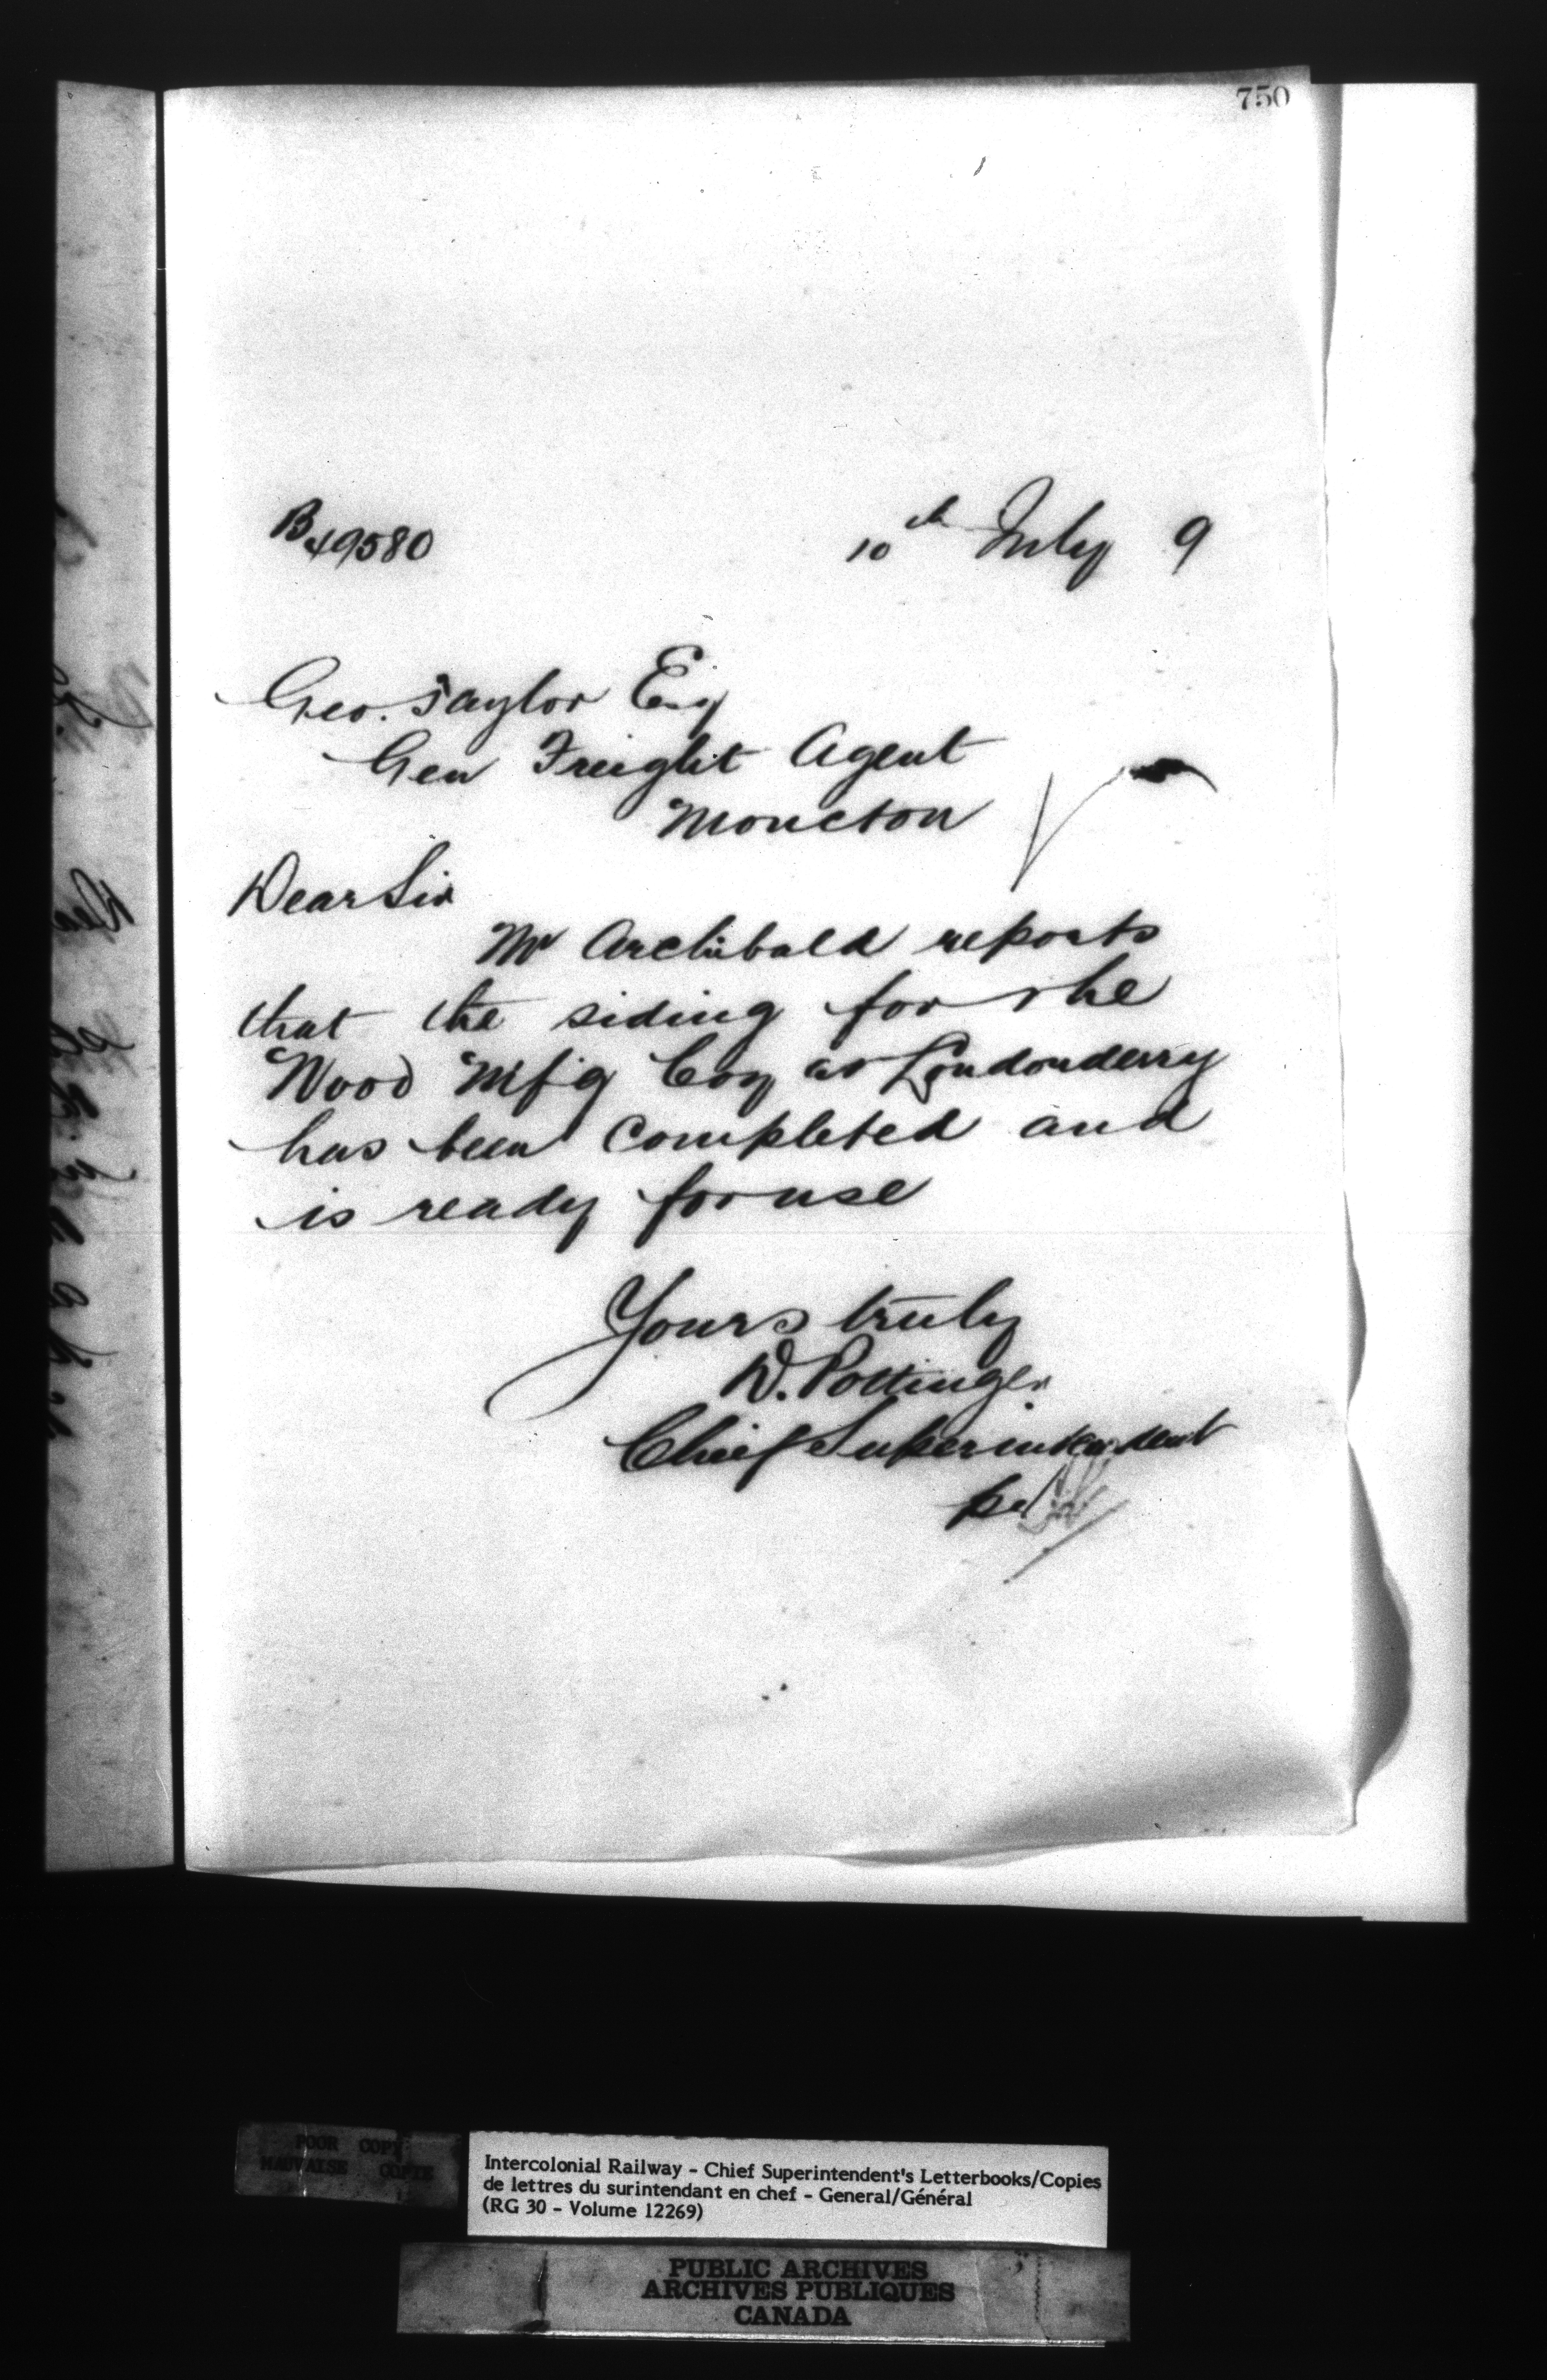 750
B 49580
10th July 9
Geo. Taylor Esq
Gen Freight Agent
Moncton
Dear Sir
Mr Archibald reports
that the siding for the
Wood Mfg Coy at Londonderry
has been completed and
is ready for use
Yours truly
D. Pottinger
Chief Superintendent
POOR COPY
MAUVAISE COPIE
Intercolonial Railway - Chief Superintendent's Letterbooks/Copies
de lettres du surintendant en chef - General/Général
(RG 30 - Volume 12269)
PUBLIC ARCHIVES
ARCHIVES PUBLIQUES
CANADA